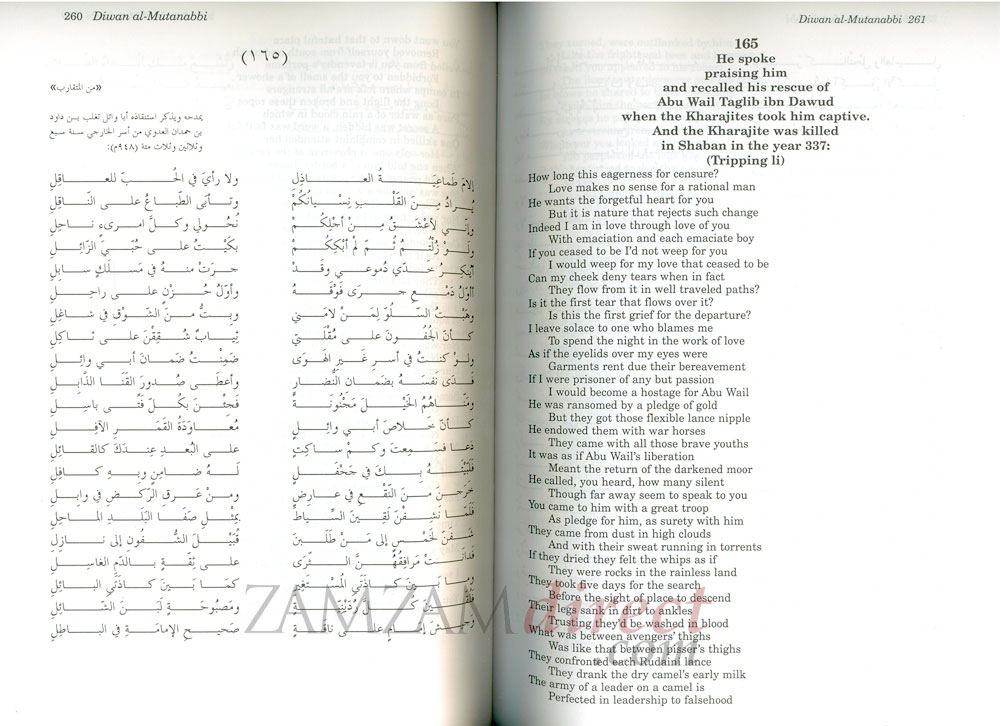 260 Diwan al-Mutanabbi
(١٦٥)
«من المتقارب»
يمدحه ويذكر استنقاذه أبا وائل تغلب بن داود
بن حمدان العدوي من أسر الخارجي سنة سبع
وثلاثين وثلاث مئة (٩٤٨م):
إلامَ طَماعِيَةُ العاذِلِ ولا رأيَ في الحُبِّ للعاقِلِ
يُرادُ مِنَ القَلْبِ نِسيانُكُمْ وتأبَى الطِّباعُ على النّاقِلِ
وإنّي لأعْشَقُ مِنْ أجْلِكُمْ نُحُولي وكلَّ امرىءٍ ناحِلِ
ولَوْ زُلْتُمُ ثُمّ لَمْ أبْكِكُمْ بكَيْتُ على حُبّيَ الزّائِلِ
أيُنكِرُ خدّي دُموعي وقَدْ جرَتْ منهُ في مَسلَكٍ سابِلِ
أأوّلُ دَمْعٍ جرَى فَوْقَهُ وأوّلُ حُزْنٍ على راحِلِ
وهَبْتُ السّلُوَّ لِمَنْ لامَني وبِتُّ منَ الشّوْقِ في شاغِلِ
كأنّ الجُفُونَ على مُقلَتي ثِيابٌ شُقِقْنَ على ثاكِلِ
ولو كنتُ في أسرِ غَيرِ الهَوَى ضَمِنْتُ ضَمانَ أبي وائِلِ
فَدَى نَفسَهُ بضَمانِ النُّضارِ وأعطَى صُدورَ القَنَا الذّابِلِ
ومَنّاهُمُ الخَيْلَ مَجْنُونَةً فَجئْنَ بكُلّ فَتًى باسِلِ
كأنّ خلاصَ أبي وائِلٍ مُعاوَدَةُ القَمَرِ الآفِلِ
دَعا فسَمِعتَ وكمْ ساكِتٍ على البُعدِ عِندَكَ كالقائِلِ
فلَبّيْتَهُ بِكَ في جَحْفَلٍ لَهُ ضامِنٍ وبِهِ كافِلِ
خرَجنَ منَ النّقْعِ في عارِضٍ ومنْ عرَقِ الرّكضِ في وابِلِ
فلَمّا نَشِفْنَ لَقِينَ السّياطَ بمِثْلِ صَفَا البَلَدِ الماحِلِ
شَفَنَّ لخَمْسٍ إلى مَنْ طَلَبنَ قُبَيْلَ الشُّفُونِ إلى نازِلِ
فدانَتْ مَرافِقُهُنّ الثّرَى على ثِقَةٍ بالدّمِ الغاسِلِ
وما بَينَ كاذَتيِ المُستَغِيرِ كمَا بَينَ كاذَتيِ البائِلِ
فلُقّينَ كلَّ رُدَيْنِيّةٍ ومَصبُوحَةٍ لَبَنَ الشّائِلِ
وجَيشَ إمامٍ على ناقَةٍ صَحيحِ الإمامَةِ في الباطِلِ
Diwan al-Mutanabbi 261
165
He spoke
praising him
and recalled his rescue of
Abu Wail Taglib ibn Dawud
when the Kharajites took him captive.
And the Kharajite was killed
in Shaban in the year 337:
(Tripping li)
How long this eagerness for censure?
Love makes no sense for a rational man
He wants the forgetful heart for you
But it is nature that rejects such change
Indeed I am in love through love of you
With emaciation and each emaciate boy
If you ceased to be I'd not weep for you
I would weep for my love that ceased to be
Can my cheek deny tears when in fact
They flow from it in well traveled paths?
Is it the first tear that flows over it?
Is this the first grief for the departure?
I leave solace to one who blames me
To spend the night in the work of love
As if the eyelids over my eyes were
Garments rent due their bereavement
If I were prisoner of any but passion
I would become a hostage for Abu Wail
He was ransomed by a pledge of gold
But they got those flexible lance nipple
He endowed them with war horses
They came with all those brave youths
It was as if Abu Wail's liberation
Meant the return of the darkened moor
He called, you heard, how many silent
Though far away seem to speak to you
You came to him with a great troop
As pledge for him, as surety with him
They came from dust in high clouds
And with their sweat running in torrents
If they dried they felt the whips as if
They were rocks in the rainless land
They took five days for the search
Before the sight of place to descend
Their legs sank in dirt to ankles
Trusting they'd be washed in blood
What was between avengers' thighs
Was like that between pisser's thighs
They confronted each Rudaini lance
They drank the dry camel's early milk
The army of a leader on a camel is
Perfected in leadership to falsehood
ZAMZAMdirect.com